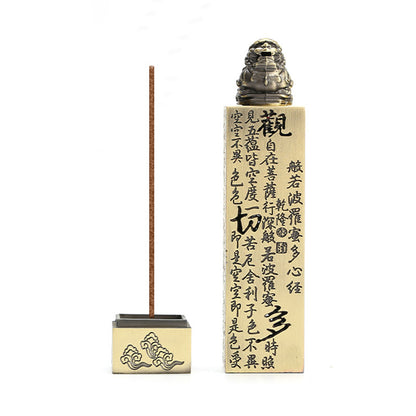 般若波羅蜜多心經
乾隆
觀自在菩薩行深般若波羅蜜多時照
見五蘊皆空度一切苦厄舍利子色不異
空空不異色色即是空空即是色受